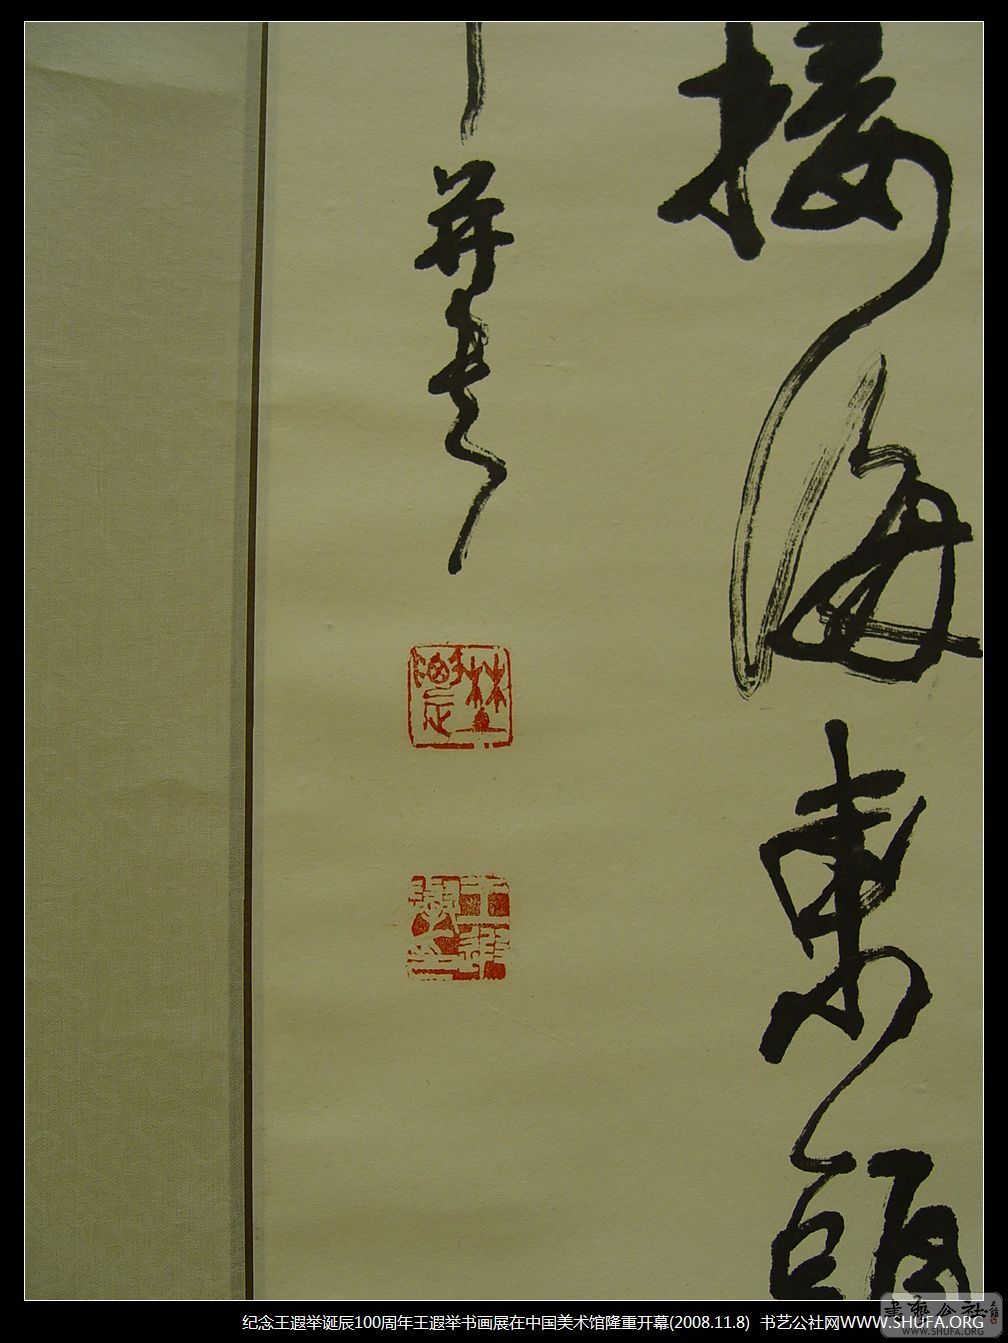 接海東
并書
王遐舉印
纪念王遐举诞辰100周年王遐举书画展在中国美术馆隆重开幕(2008.11.8) 书艺公社网WWW.SHUFA.ORG
书艺公社
WWW.SHUFA.ORG